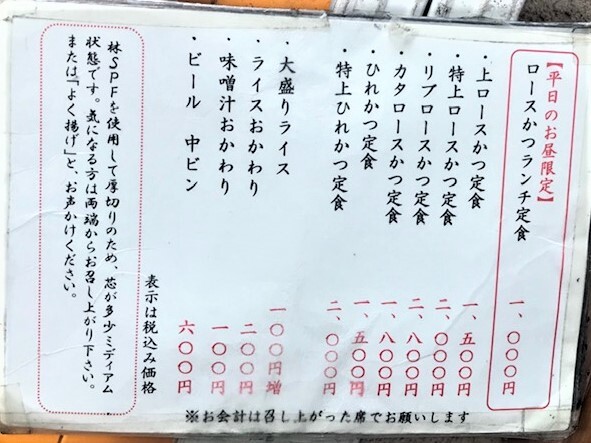 【平日のお昼限定】
ロースかつランチ定食 一、〇〇〇円
・上ロースかつ定食 一、五〇〇円
・特上ロースかつ定食 二、〇〇〇円
・リブロースかつ定食 二、八〇〇円
・カタロースかつ定食 一、八〇〇円
・ひれかつ定食 一、五〇〇円
・特上ひれかつ定食 二、〇〇〇円
・大盛りライス 一〇〇円増
・ライスおかわり 二〇〇円
・味噌汁おかわり 一〇〇円
・ビール 中ビン 六〇〇円
表示は税込み価格
林SPFを使用して厚切りのため、芯が多少ミディアム
状態です。気になる方は両端からお召し上がり下さい。
または『よく揚げ』と、お声かけください。
※お会計は召し上がった席でお願いします